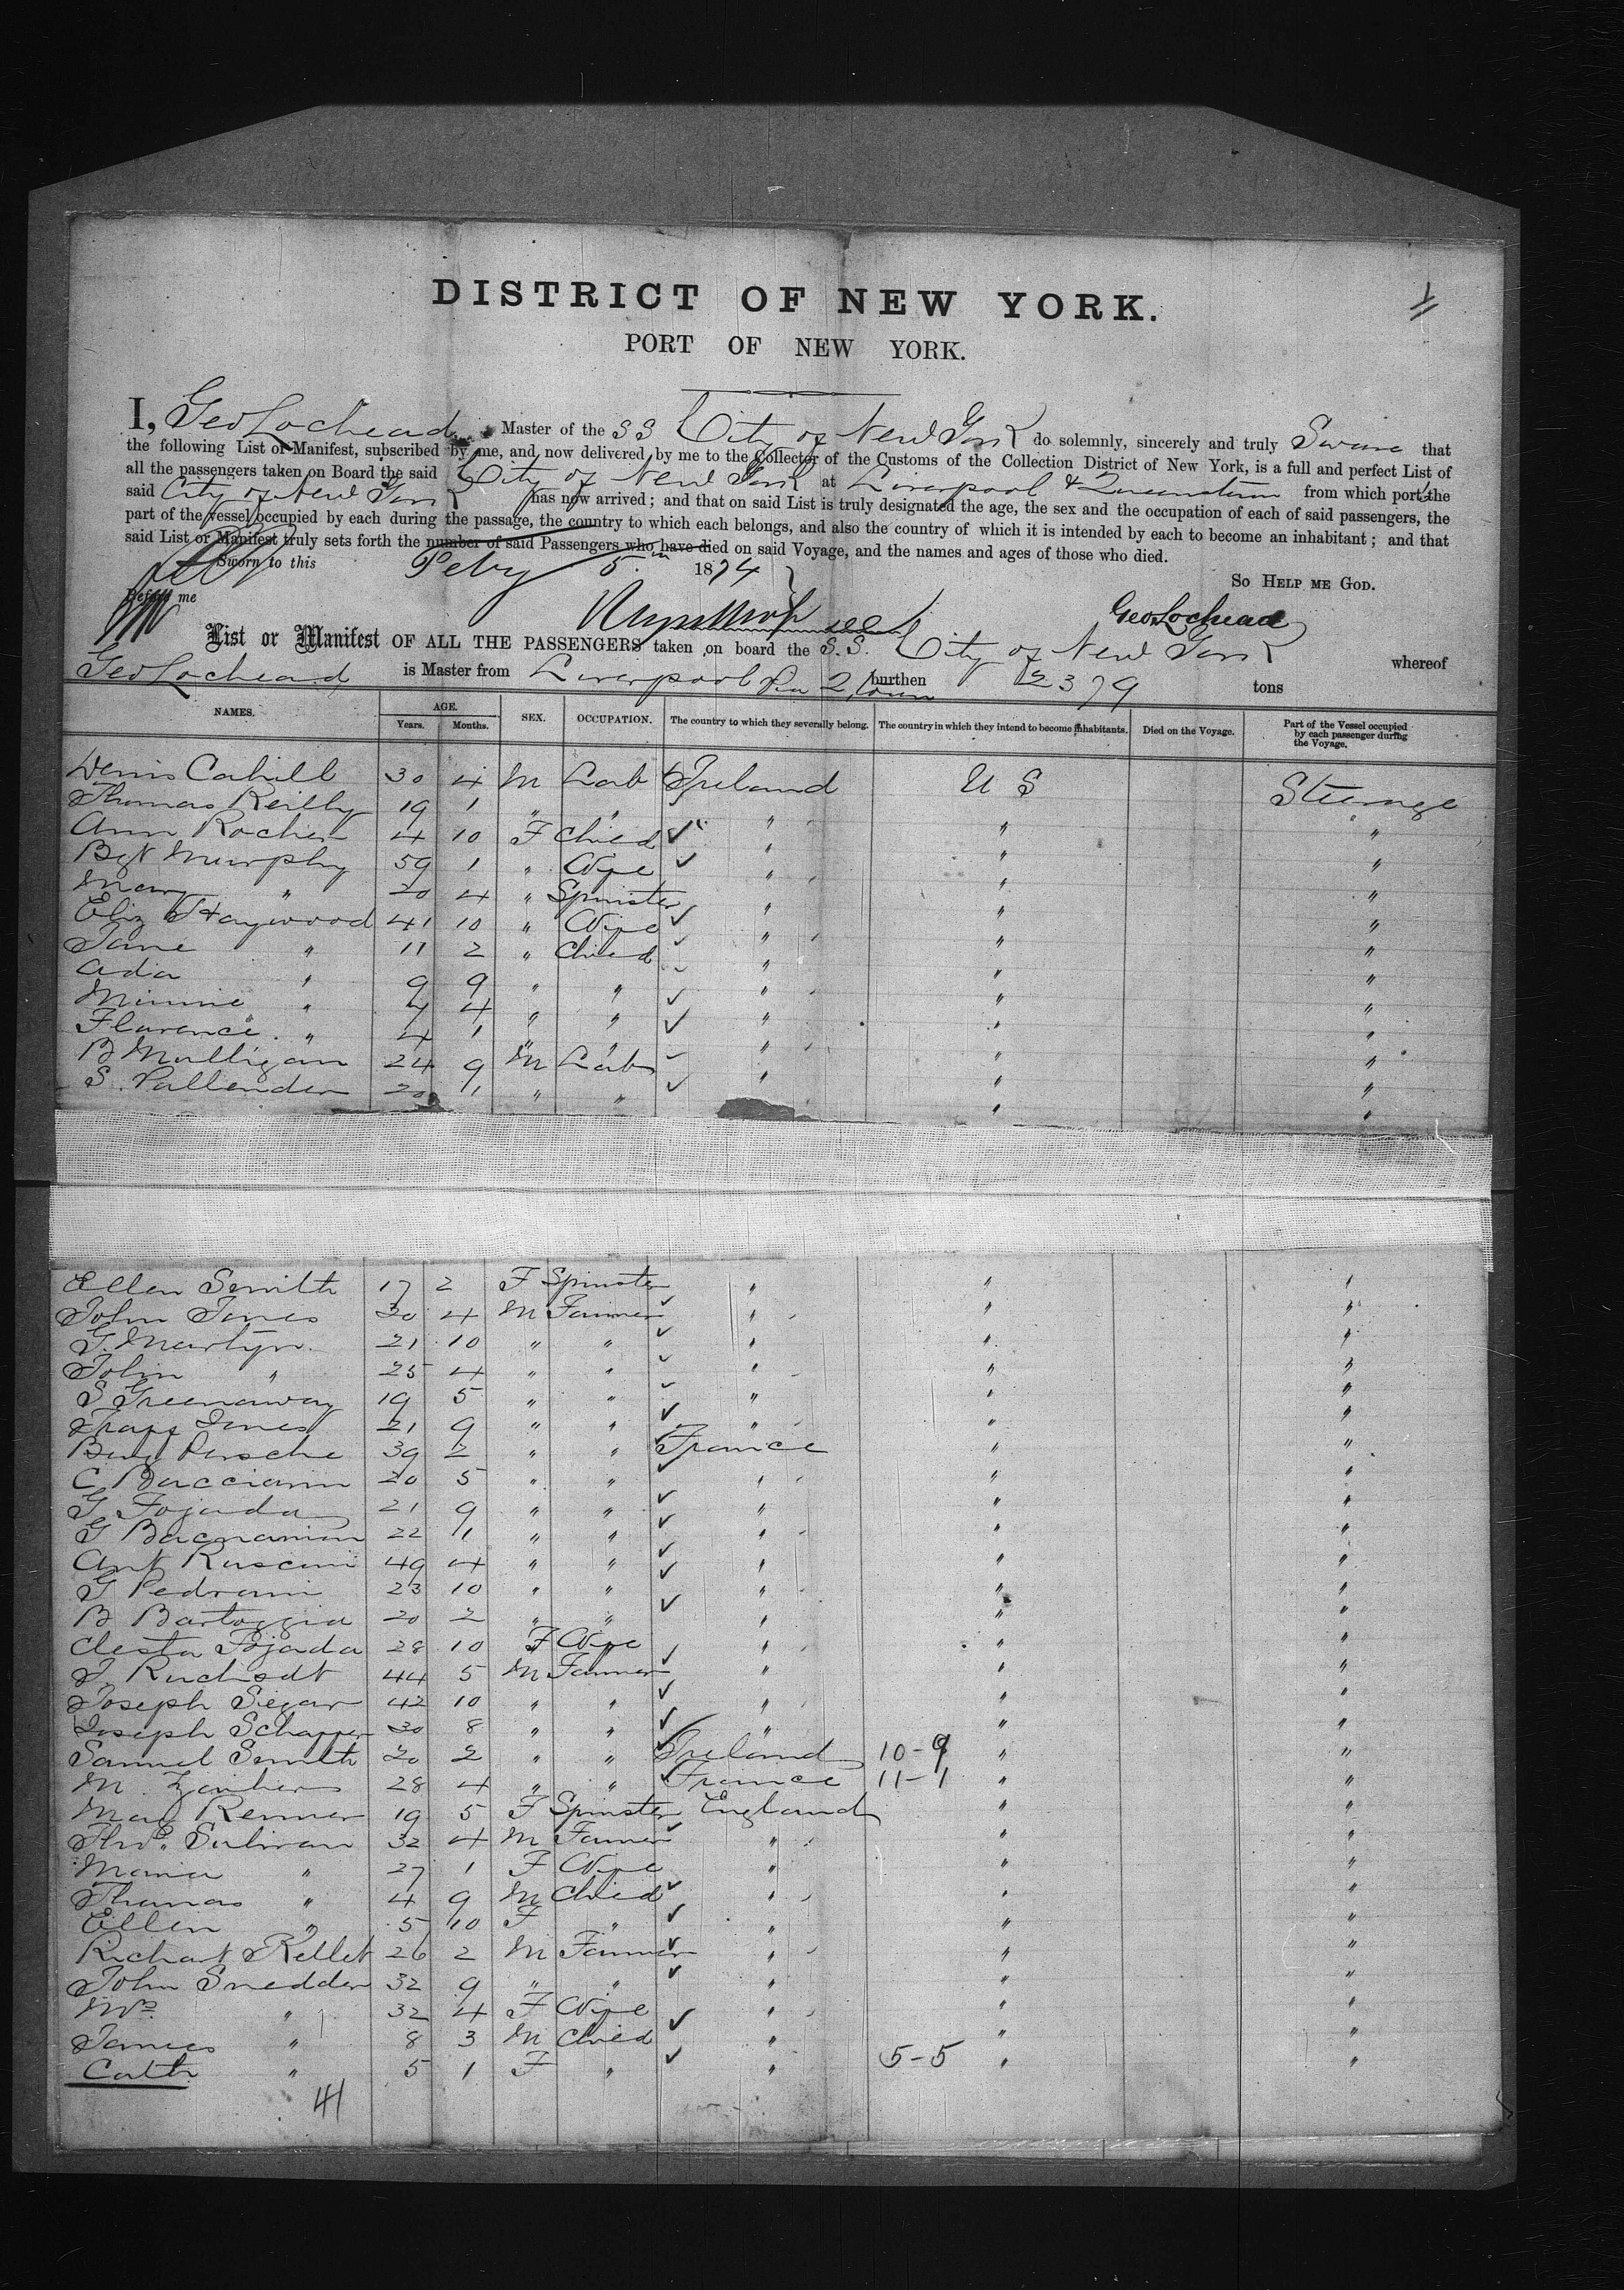 DISTRICT OF NEW YORK.
PORT OF NEW YORK.
I, Geo Lochead Master of the SS City of New York do solemnly, sincerely and truly Swear that
the following List or Manifest, subscribed by me, and now delivered by me to the Collector of the Customs of the Collection District of New York, is a full and perfect List of
all the passengers taken on Board the said City of New York at Liverpool & Queenstown from which port the
said City of New York has now arrived; and that on said List is truly designated the age, the sex and the occupation of each of said passengers, the
part of the vessel occupied by each during the passage, the country to which each belongs, and also the country of which it is intended by each to become an inhabitant; and that
said List or Manifest truly sets forth the number of said Passengers who have died on said Voyage, and the names and ages of those who died.
Sworn to this Feby 5th 1874
So HELP ME GOD.
Before me
Geo Lochead
List or Manifest OF ALL THE PASSENGERS taken on board the S.S. City of New York whereof
Geo Lochead is Master from Liverpool burthen 2379 tons
NAMES. AGE. Years. Months. SEX. OCCUPATION. The country to which they severally belong. The country in which they intend to become inhabitants. Died on the Voyage. Part of the Vessel occupied by each passenger during the Voyage.
Denis Cahill 30 4 M Lab Ireland U S Steerage
Thomas Reilly 19 1 " " " " "
Ann Rocher 4 10 F Child " " "
Bgt Murphy 59 1 " Wife " " "
Mary " 20 4 " Spinster " " "
Eliz Haywood 41 10 " Wife " " "
Jane " 11 2 " Child " " "
Ada " 9 9 " " " " "
Minnie " 7 4 " " " " "
Florence " 4 1 " " " " "
B Mulligan 24 9 M Lab " " "
S. Pallender 20 11 " " " "
Ellen Smith 17 2 F Spinster " " "
John Jones 30 4 M Farmer " " "
G. Martyn 21 10 " " " " "
John " 25 4 " " " " "
S Greenaway 19 5 " " " " "
Jones 21 9 " " " " "
Benj 39 2 " " France " "
C 20 5 " " " " "
G Fojada 21 9 " " " " "
G 22 11 " " " " "
Ant Rusconi 49 4 " " " " "
G Pedroni 23 10 " " " " "
B Bartoggia 20 2 " " " " "
Fojada 28 10 F Wife " " "
44 5 M Farmer " " "
Joseph Segar 42 10 " " " " "
Joseph Schapper 30 8 " " " " "
Samuel Smith 20 2 " " Ireland 10-9 " "
M 28 4 " " France 11-1 " "
Mary Renner 19 5 F Spinster England " "
Thos. Sulivan 32 4 M Farmer " " "
Maria " 27 1 F Wife " " "
Thomas " 4 9 M Child " " "
Ellen " 5 10 F " " " "
Richard Kellet 26 2 M Farmer " " "
John Snedden 32 9 " " " " "
Mrs " 32 4 F Wife " " "
James " 8 3 M Child " " "
Cath " 5 1 F " " 5-5 " "
41